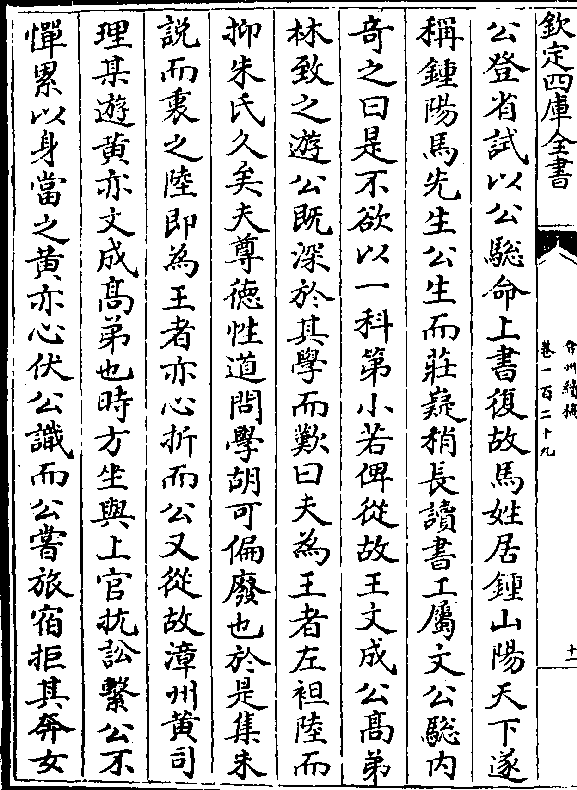 欽定四庫全書
弇州續稿
卷一百二十九
十一
公登省試以公騘命上書復故馬姓居鍾山陽天下遂
稱鍾陽馬先生公生而莊嶷稍長讀書工屬文公騘内
竒之曰是不欲以一科第小若俾從故王文成公髙弟
林致之遊公既深於其學而歎曰夫為王者左袒陸而
抑朱氏久矣夫尊徳性道問學胡可偏廢也於是集朱
說而裏之陸即為王者亦心折而公又從故漳州黄司
理某遊黄亦文成髙弟也時方坐與上官抗訟繫公不
憚累以身當之黄亦心伏公識而公嘗旅宿拒其奔女